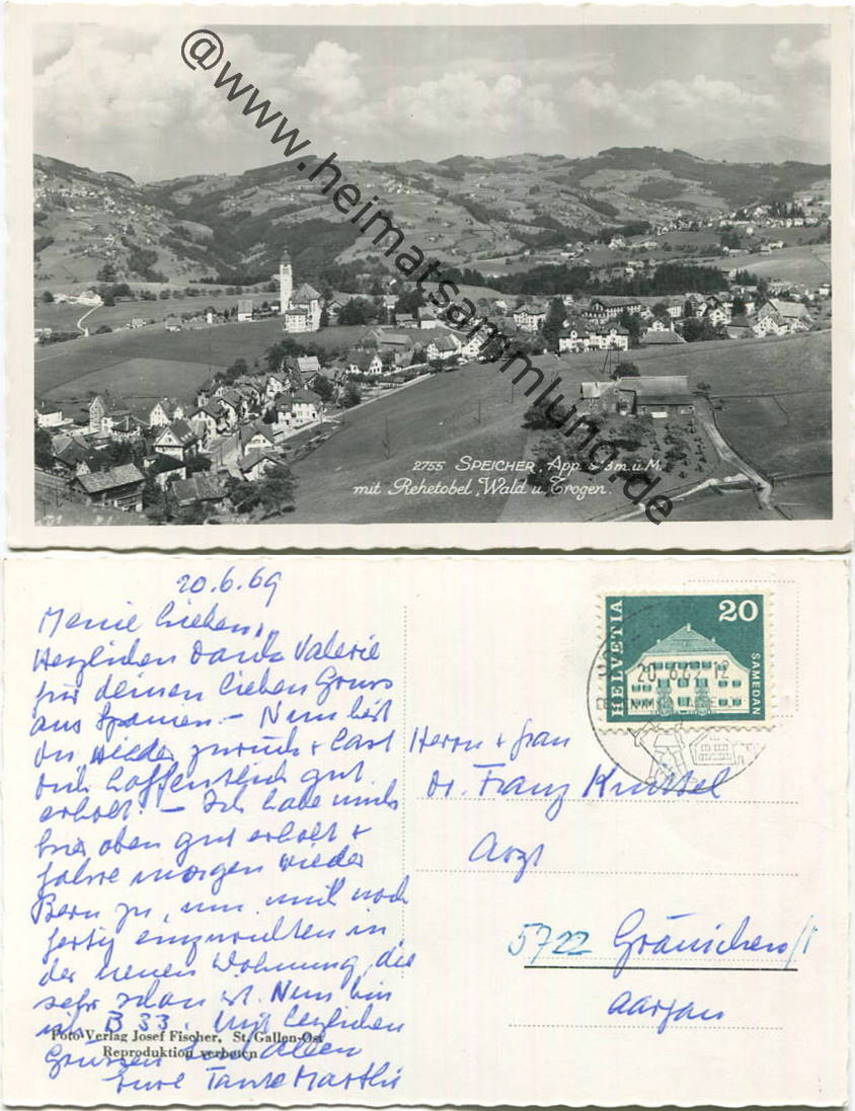 @www.heimatsammlung.de
2755 SPEICHER, App. 3 m.ü.M.
mit Rehetobel, Wald u. Trogen.
20.6.69
Meine Lieben,
Herzlichen Dank Valerie
für deinen lieben Gruss
aus Spanien. – Nun bist
du wieder zurück + hast
dich hoffentlich gut
erholt. – Ich habe mich
hier oben gut erholt +
fahre morgen wieder
Bern zu, um mich noch
fertig einzurichten in
der neuen Wohnung, die
sehr schön ist. Nun bin
ich B 33. Mit herzlichen
Grüssen Euch allen
Eure Tante Marthi
Foto-Verlag Josef Fischer, St. Gallen-Ost
Reproduktion verboten
HELVETIA
20
SAMEDAN
20.6.69 12
Herrn + Frau
Dr. Franz
Arzt
5722 Gränichen
Aargau